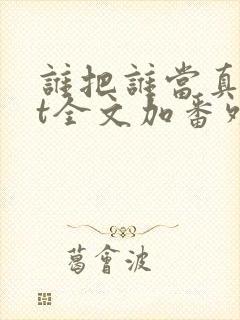 誰把誰當真
t全文加番外
葛會波